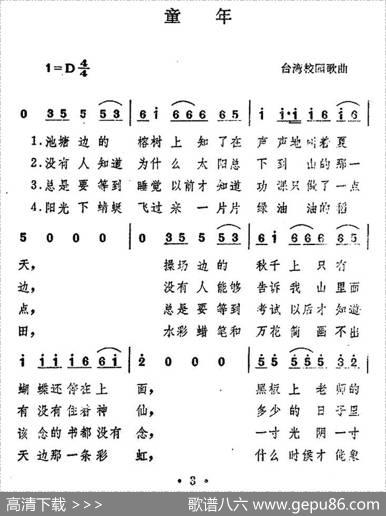 童 年
1=D 4/4
台湾校园歌曲
0 35 5 53 | 61 666 65 | i i·i i66 i65 |
1.池塘边的 榕树上知了在 声声地叫着夏
2.没有人知道 为什么太阳总 下到山的那一
3.总是要等到 睡觉以前才知道 功课只做了一点
4.阳光下蜻蜓 飞过来一片片 绿油油的稻
5 0 0 0 | 0 35 55 53 | 6i 666 665 |
天, 操场边的 秋千上只有
边, 没有人能够 告诉我山里面
点, 总是要等到 考试以后才知道
田, 水彩蜡笔和 万花筒画不出
i i i i 6 6i | 2 0 0 0 | 55 55 55 32 |
蝴蝶还停在上 面, 黑板上老师的
有没有住着神 仙, 多少的日子里
该念的书都没有 念, 一寸光阴一寸
天边那一条彩 虹, 什么时候才能象
• 3 •
高清下载 >>>
歌谱八六 www.gepu86.com